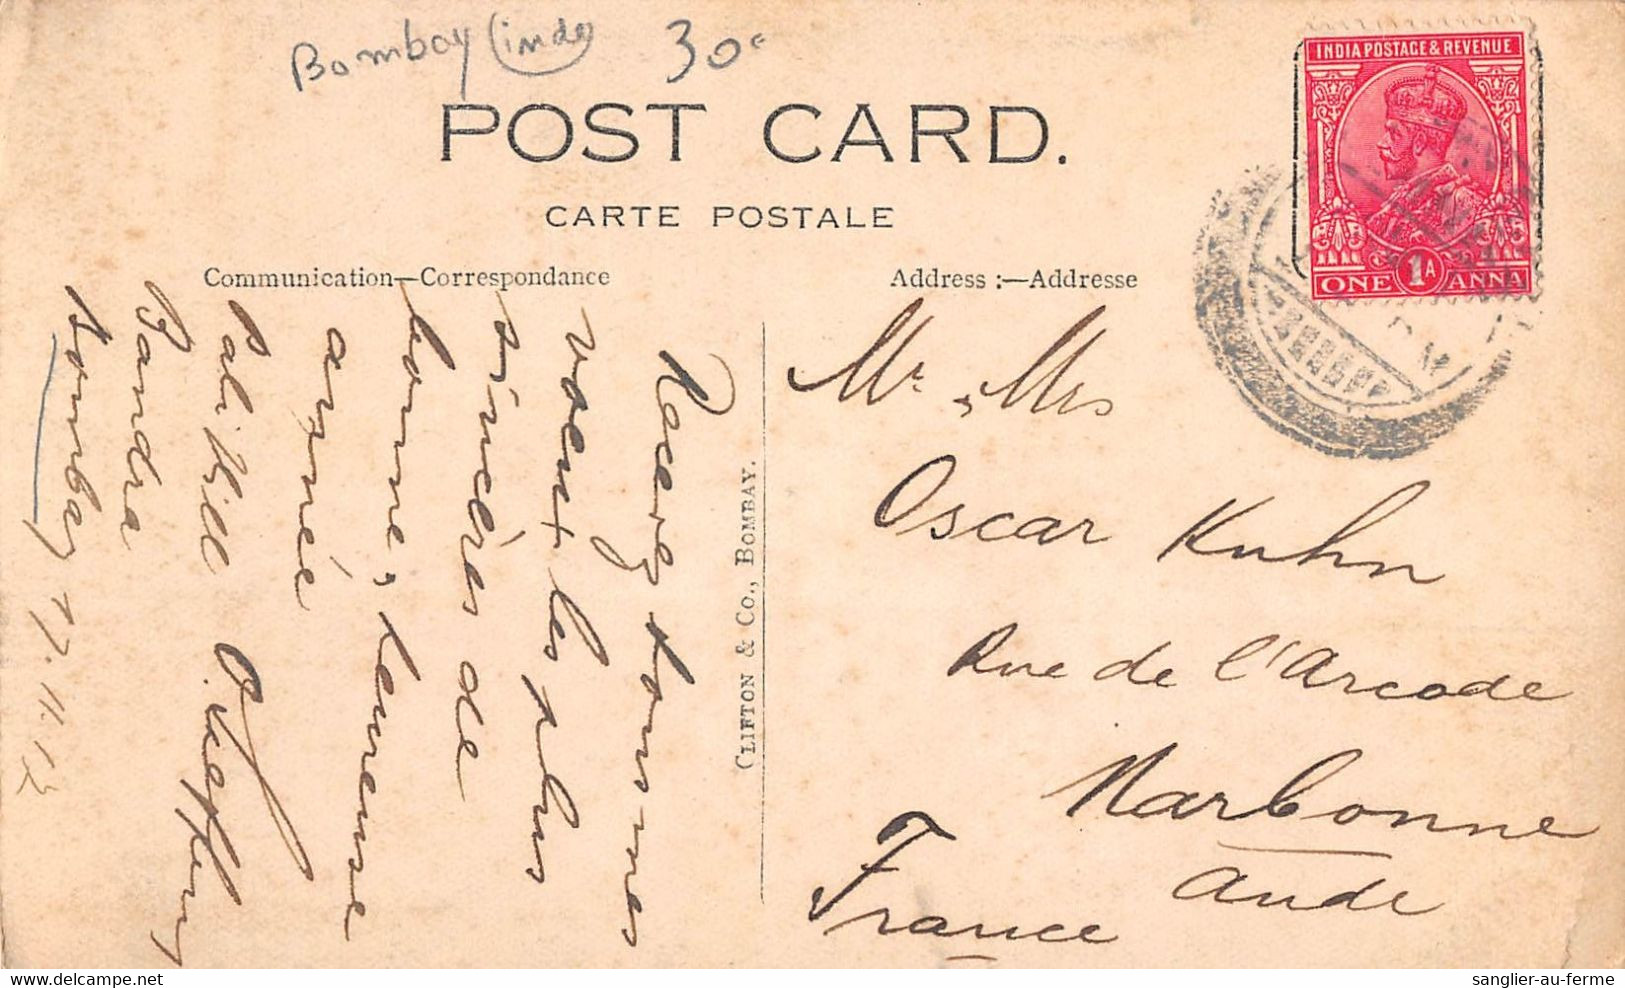 Bombay (inde) 30c
POST CARD.
CARTE POSTALE
Communication—Correspondance
Address :—Addresse
INDIA POSTAGE & REVENUE
ONE 1A ANNA
Recevez tous mes
voeux les plus
sincères de
bonne, heureuse
année
Pali Hill
Bandra
Bombay 27.11.13
CLIFTON & CO., BOMBAY.
Mr. Mrs
Oscar Kuhn
Rue de l'Arcade
Narbonne
Aude
France
sanglier-au-ferme